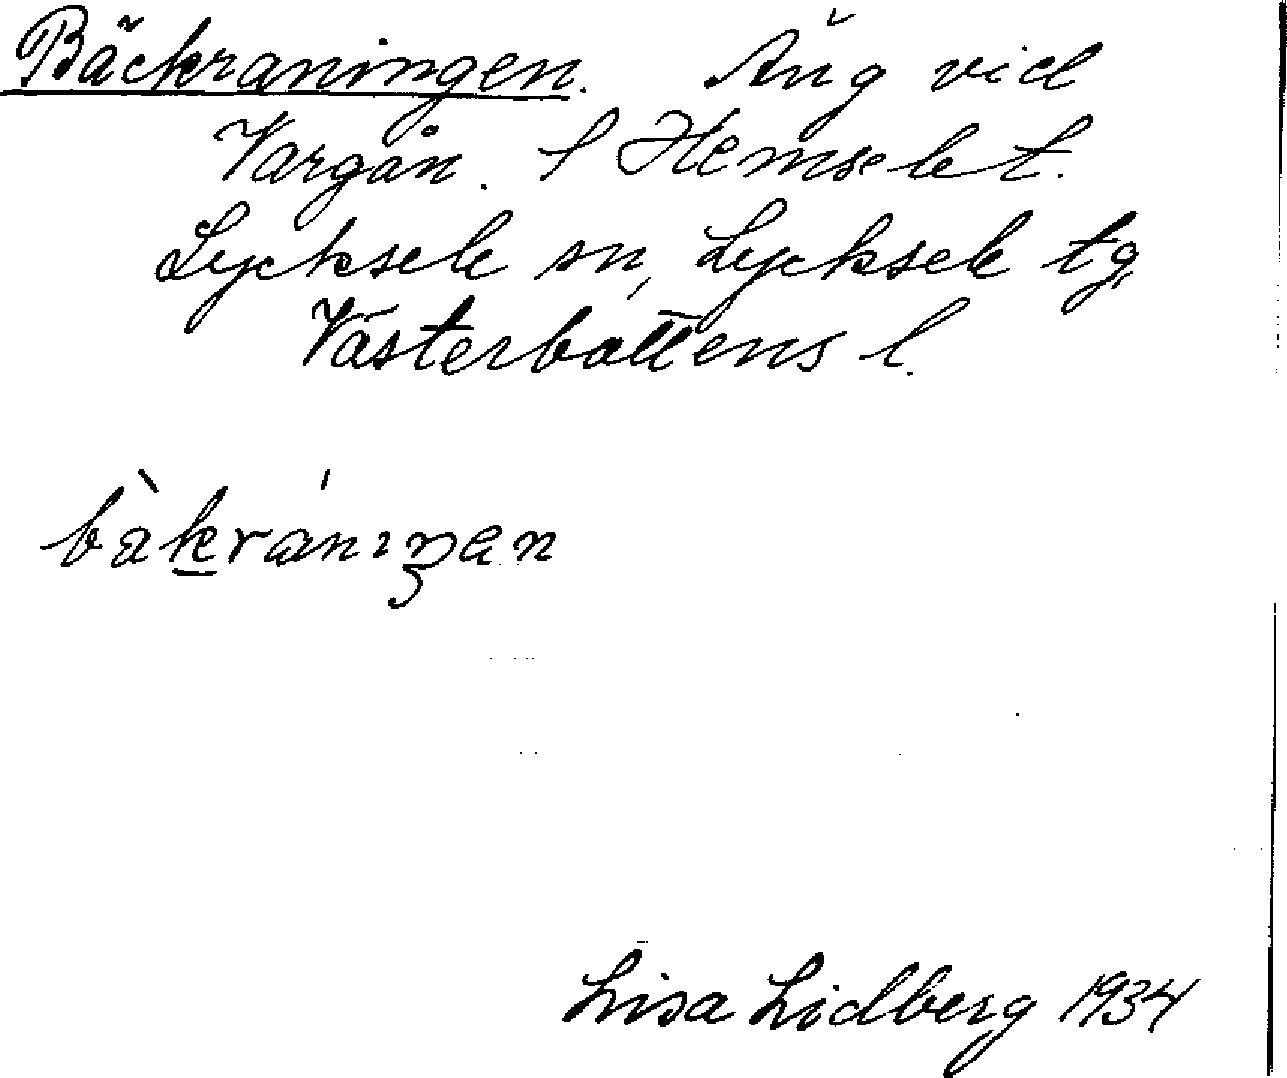 Bäckraningen. Äng vid
Vargån. l Hemselet.
Lycksele sn, Lycksele tg,
Västerbottens l.
Lisa Lidberg 1934